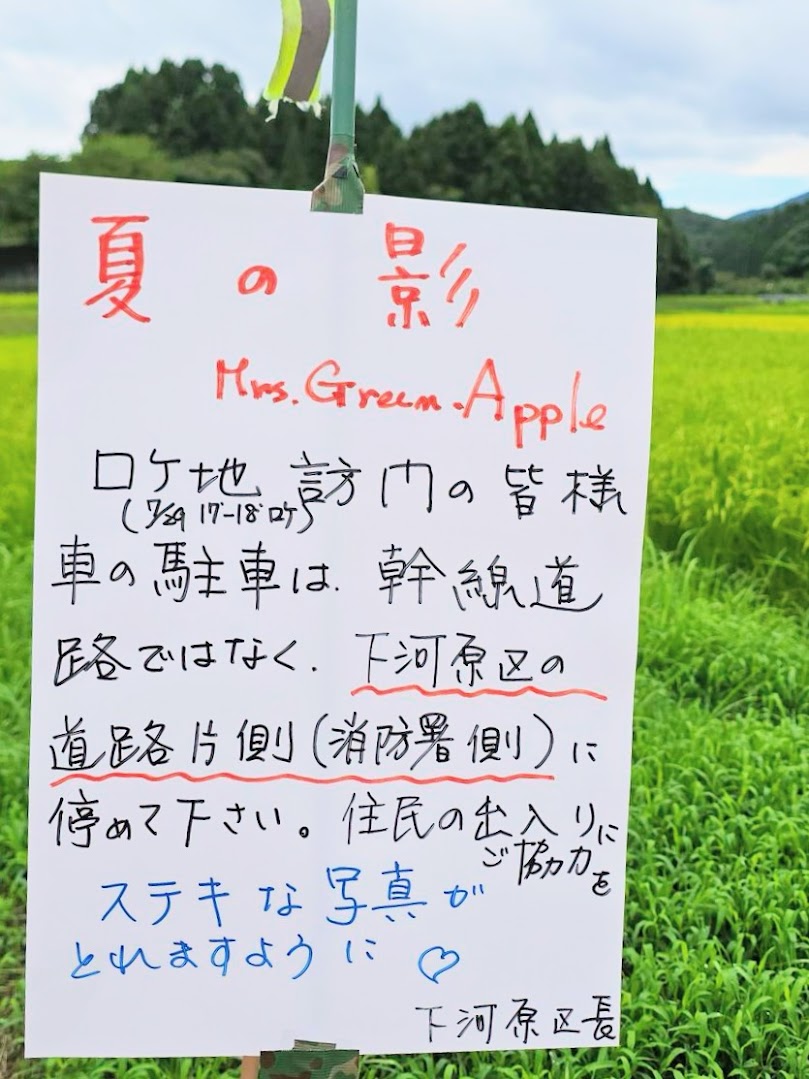 夏の影
Mrs.Green.Apple
ロケ地訪門の皆様
(7/29 17-18ロケ)
車の駐車は、幹線道
路ではなく、下河原区の
道路片側(消防署側)に
停めて下さい。住民の出入りに
ご協力を
ステキな写真が
とれますように♡
下河原区長